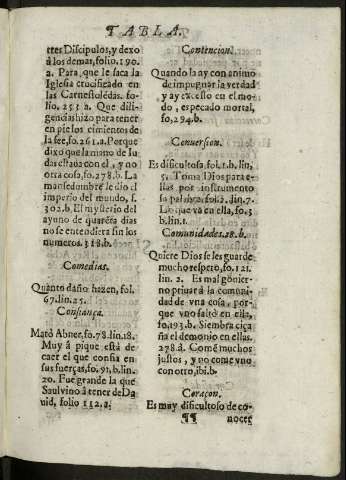 TABLA.
tres Discipulos, y dexo
à los demas, folio. 190.
a. Para, que le saca la
Iglesia crucificado en
las Carnestolédas. fo-
lio. 253 a. Que dili-
gencias hizo para tener
en pie los cimientos de
la fee, fo. 261. a. Porque
dixo que la mano de Iu
das estaua con el, y no
otra cosa, fo. 278. b. La
mansedumbre le dio el
imperio del mundo, f.
302. b. El mysterio del
ayuno de quarẽta dias
no se entendiera sin los
numeros. 318. b.
Comedias.
Quanto daño hazen, fol.
67. lin. 25.
Confiança.
Matò Abner, fo. 78. lin. 18.
Muy à pique està de
caer el que confia en
sus fuerças, fo. 91, b. lin.
20. Fue grande la que
Saul vino à tener de Da
uid, folio 112. a.
Contencion.
Quando la ay con animo
de impugnar la verdad
y ay excesso en el mo-
do, es pecado mortal,
fo, 294. b.
Conuersion.
Es dificultosa, fol. 1. b. lin,
5. Toma Dios para e-
llas por instrumento
su palabra, fol. 2. lin. 7.
Lo que va en ella, fo. 3
b. lin. 1.
Comunidades. 18. b.
Quiere Dios se les guarde
mucho respeto, fo. 121.
lin. 2. Es mal gouier-
no priuar à la comuni
dad de vna cosa, por-
que vno faltò en ella,
fo, 193. b. Siembra ciça
ña el demonio en ellas.
278. à. Comē muchos
justos, y no come vno
con otro, ibi. b.
Coraçon.
Es muy dificultoso de co-
¶¶ nocer